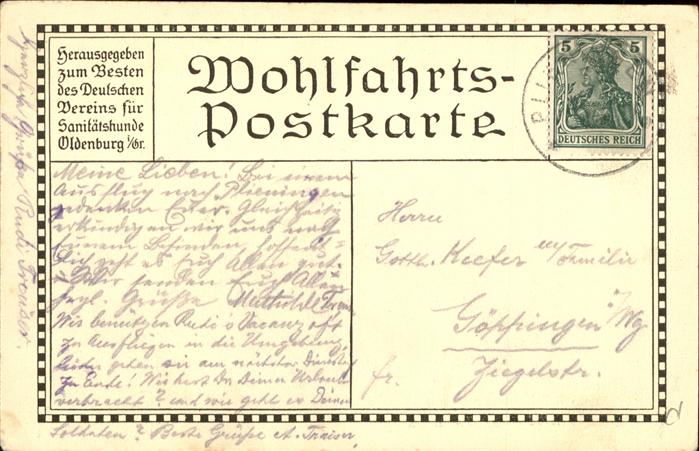 Herausgegeben
zum Besten
des Deutschen
Vereins für
Sanitätshunde
Oldenburg i/Gr.
Wohlfahrts-
Postkarte
5 5
DEUTSCHES REICH
Meine Lieben! Bei einem
Ausflug nach Plieningen
gedenken Eurer. Gleichzeitig
erkundigen wir uns nach
Eurem Befinden, hoffent-
lich geht es Euch Allen gut.
Wir senden Euch Allen
herzl. Grüße
Wir benützen Rudi's Vacanz oft
zu Ausflügen in die Umgebung,
leider gehen sie am nächsten Dienstag
zu Ende! Wie hast Du Deinen Urlaub
verbracht? und wie geht es Deinen
Soldaten? Beste Grüße A.
Herzliche Grüße Rudi
Herrn
Gotth. Keefer u/Familie
Göppingen /Wg
fr. Ziegelstr.